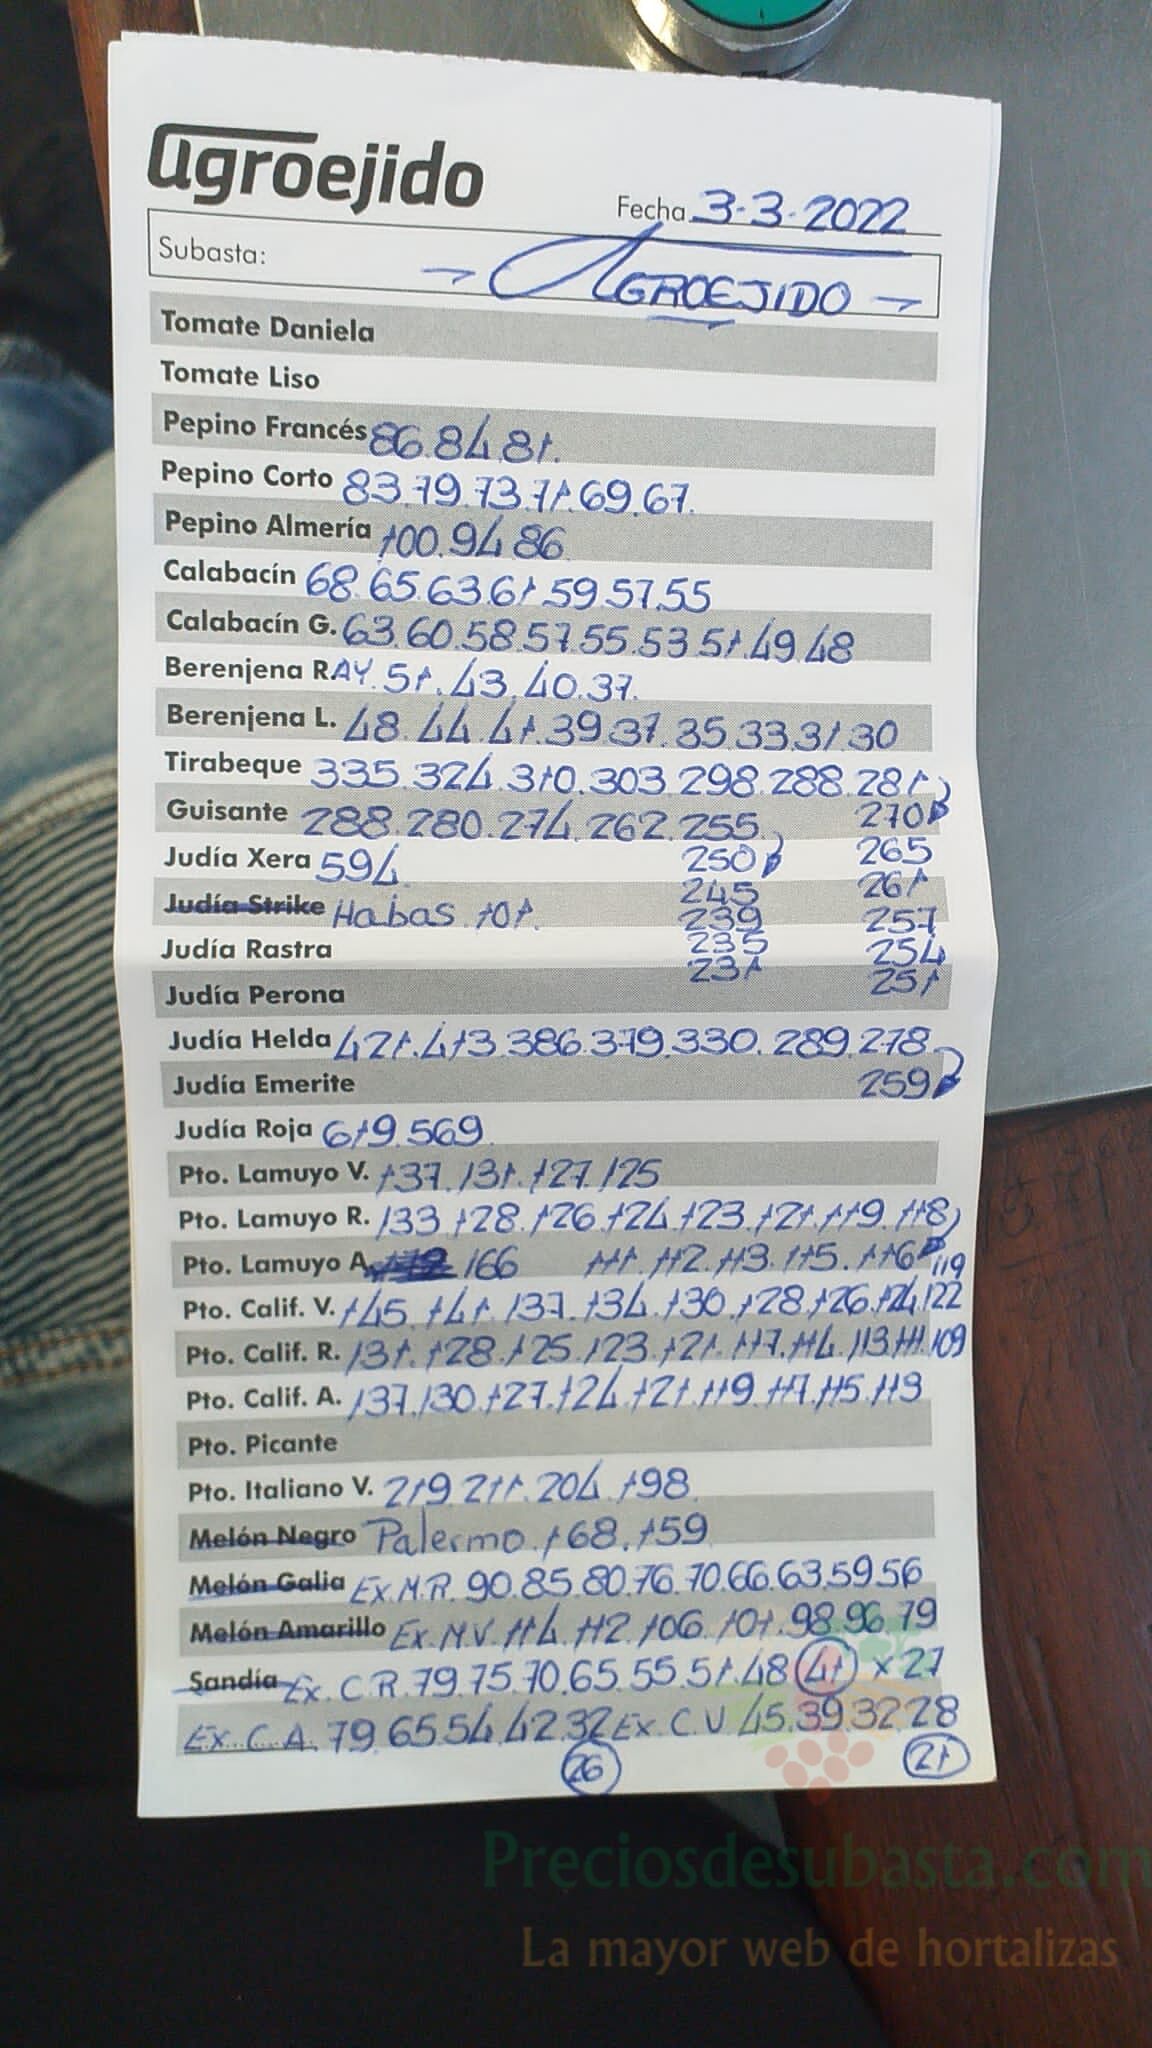 agroejido
Fecha 3-3-2022
Subasta: → AGROEJIDO →
Tomate Daniela
Tomate Liso
Pepino Francés 86.84.81.
Pepino Corto 83.79.73.71.69.67.
Pepino Almería 100.94.86
Calabacín 68.65.63.61.59.57.55
Calabacín G. 63.60.58.57.55.53.51.49.48
Berenjena R. AY. 51.43.40.37.
Berenjena L. 48.44.41.39.37.35.33.31.30
Tirabeque 335.324.310.303.298.288.281
Guisante 288.280.274.262.255. 270
Judía Xera 594 250 265
245 261
Judía Strike Habas.101. 239 257
Judía Rastra 235 254
231 251
Judía Perona
Judía Helda 421.413.386.379.330.289.278
Judía Emerite 259
Judía Roja 619.569
Pto. Lamuyo V. 137.131.127.125
Pto. Lamuyo R. 133.128.126.124.123.121.119.118
Pto. Lamuyo A. 166 111.112.113.115.116 119
Pto. Calif. V. 145.141.137.134.130.128.126.124.122
Pto. Calif. R. 131.128.125.123.121.117.114.113.111.109
Pto. Calif. A. 137.130.127.124.121.119.117.115.113
Pto. Picante
Pto. Italiano V. 219.211.204.198
Melón Negro Palermo.168.159
Melón Galia Ex.M.R. 90.85.80.76.70.66.63.59.56
Melón Amarillo Ex.M.V. 114.112.106.101.98.96.79
Sandía Ex.C.R. 79.75.70.65.55.51.48 41 x 27
Ex.C.A. 79.65.54.42.32 Ex.C.V 45.39.32.28
26 21
Preciosdesubasta.com
La mayor web de hortalizas